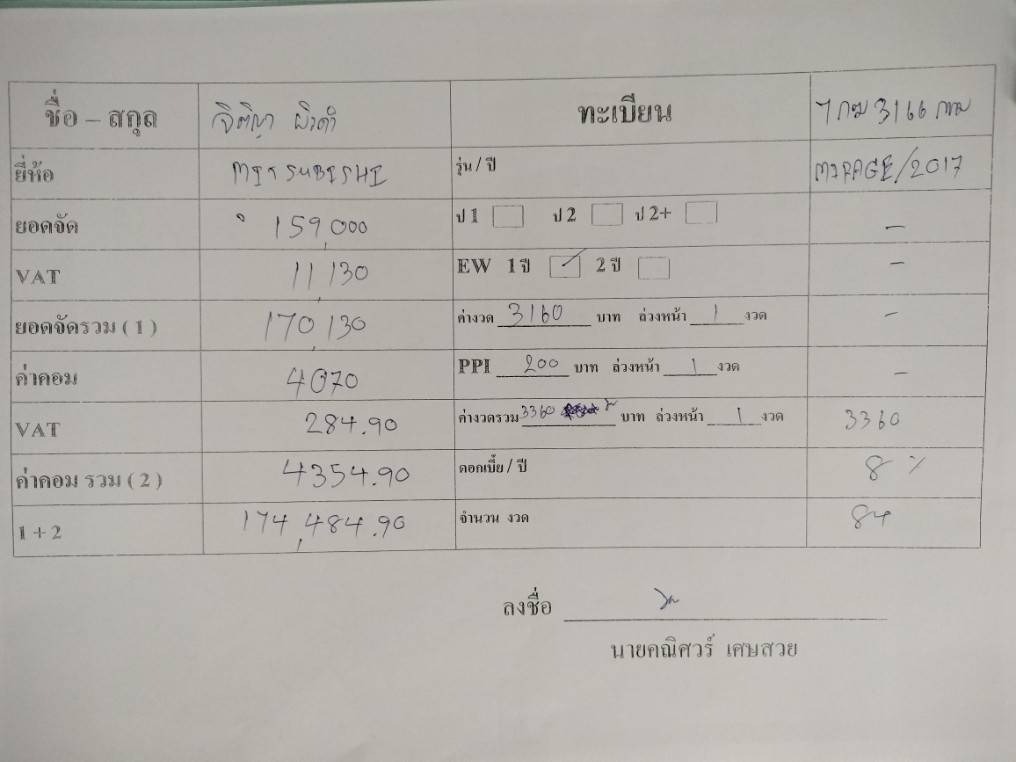 ชื่อ – สกุล จิติญา ผิวดำ ทะเบียน 3166 กทม
ยี่ห้อ MITSUBISHI รุ่น / ปี MIRAGE/2017
ยอดจัด 159,000 ป 1 ป 2 ป 2+ –
VAT 11,130 EW 1 ปี ✓ 2 ปี –
ยอดจัดรวม ( 1 ) 170,130 ค่างวด 3160 บาท ล่วงหน้า 1 งวด –
ค่าคอม 4070 PPI 200 บาท ล่วงหน้า 1 งวด –
VAT 284.90 ค่างวดรวม 3360 บาท ล่วงหน้า 1 งวด 3360
ค่าคอม รวม ( 2 ) 4354.90 ดอกเบี้ย / ปี 8 %
1 + 2 174,484.90 จำนวน งวด 84
ลงชื่อ
นายคณิศวร์ เศษสวย